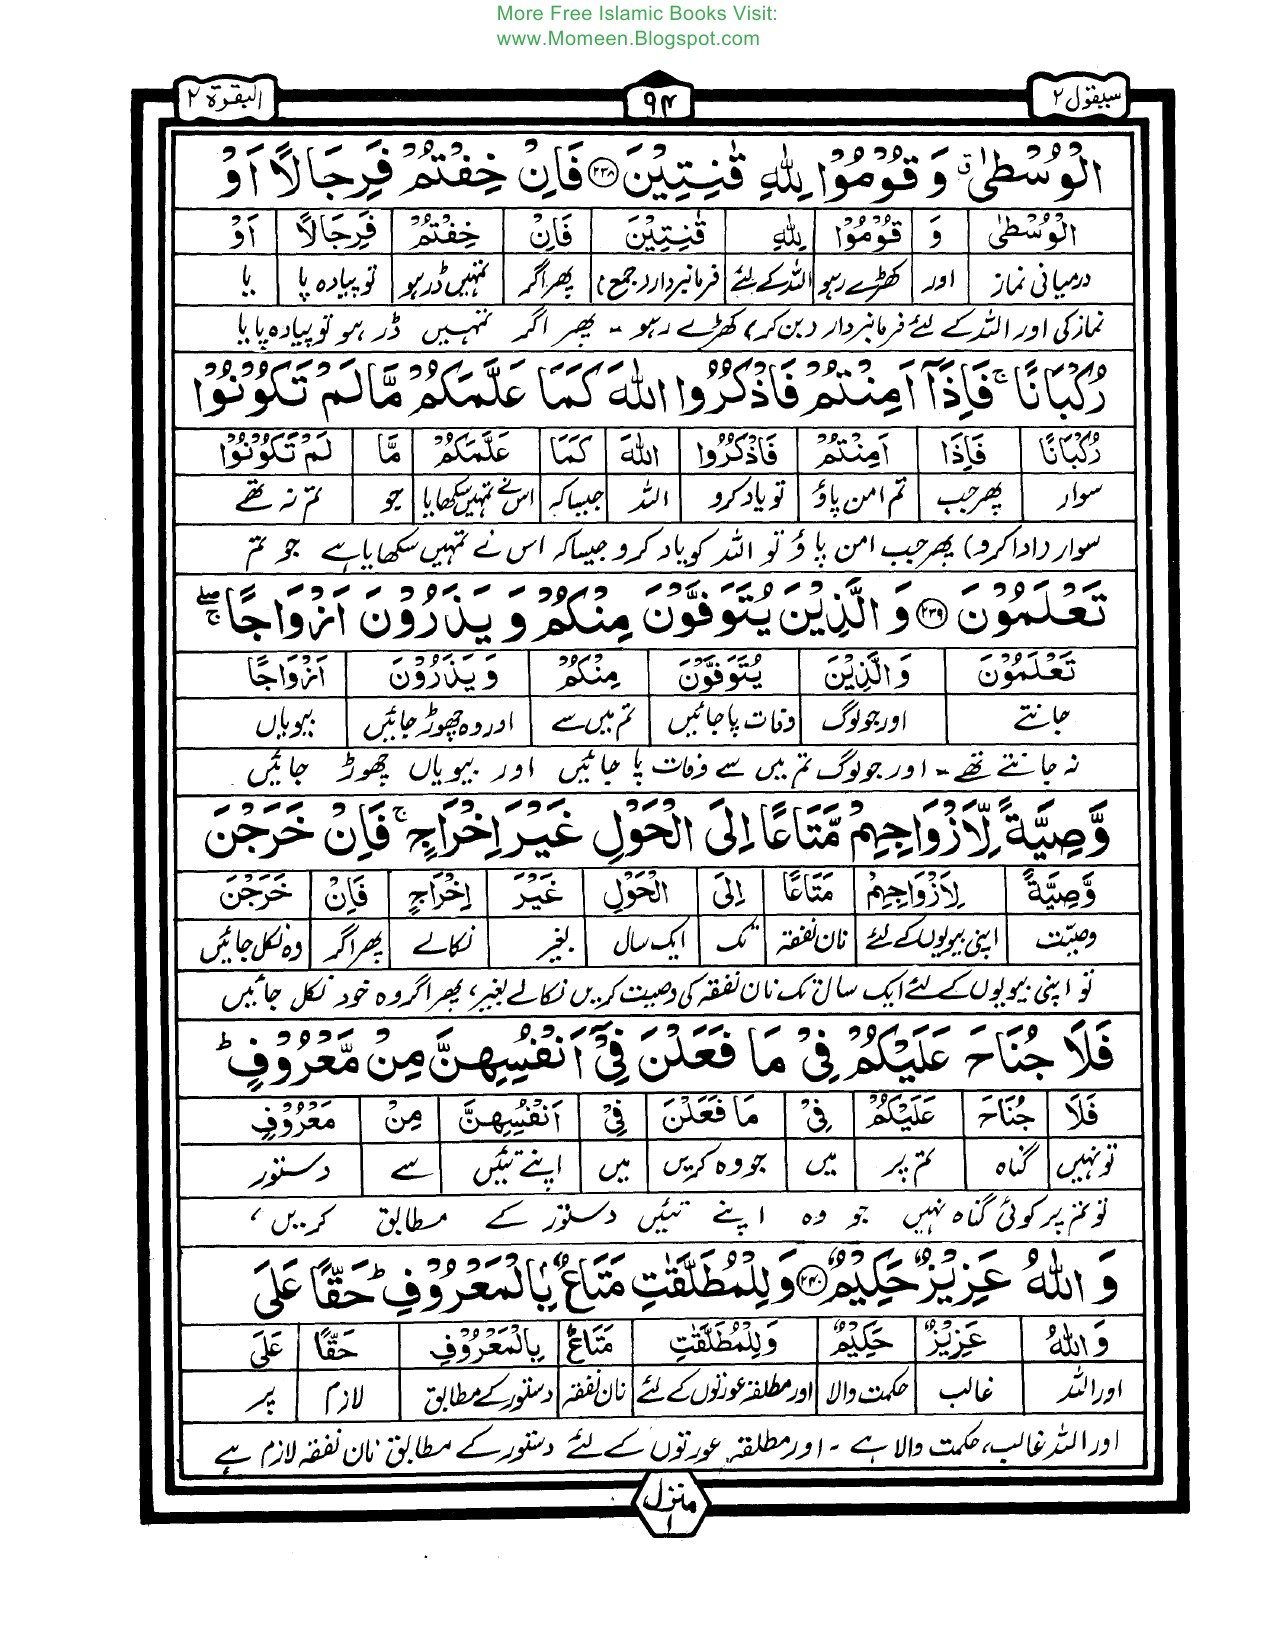 More Free Islamic Books Visit:
www.Momeen.Blogspot.com
سیقول ۲ ۹۴ البقرة ۲
الْوُسْطٰىۗ وَ قُوْمُوْا لِلّٰهِ قٰنِتِیْنَ ۲۳۸ فَاِنْ خِفْتُمْ فَرِجَالًا اَوْ
الْوُسْطٰى وَ قُوْمُوْا لِلّٰهِ قٰنِتِیْنَ فَاِنْ خِفْتُمْ فَرِجَالًا اَوْ
درمیانی نماز اور کھڑے رہو اللہ کے لئے فرمانبردار (جمع) پھر اگر تمہیں ڈر ہو تو پیادہ پا یا
نماز کی اور اللہ کے لئے فرمانبردار (بن کر) کھڑے رہو - پھر اگر تمہیں ڈر ہو تو پیادہ پا یا
رُكْبَانًا ۚ فَاِذَاۤ اَمِنْتُمْ فَاذْكُرُوا اللّٰهَ كَمَا عَلَّمَكُمْ مَّا لَمْ تَكُوْنُوْا
رُكْبَانًا فَاِذَا اَمِنْتُمْ فَاذْكُرُوا اللّٰهَ كَمَا عَلَّمَكُمْ مَّا لَمْ تَكُوْنُوْا
سوار پھر جب تم امن پاؤ تو یاد کرو اللہ جیسا کہ اس نے تمہیں سکھایا جو تم نہ تھے
سوار (ادا کرو) پھر جب امن پاؤ تو اللہ کو یاد کرو جیسا کہ اس نے تمہیں سکھایا ہے جو تم
تَعْلَمُوْنَ ۲۳۹ وَ الَّذِیْنَ یُتَوَفَّوْنَ مِنْكُمْ وَ یَذَرُوْنَ اَزْوَاجًا ۖۚ
تَعْلَمُوْنَ وَ الَّذِیْنَ یُتَوَفَّوْنَ مِنْكُمْ وَ یَذَرُوْنَ اَزْوَاجًا
جانتے اور جو لوگ وفات پا جائیں تم میں سے اور وہ چھوڑ جائیں بیویاں
نہ جانتے تھے - اور جو لوگ تم میں سے وفات پا جائیں اور بیویاں چھوڑ جائیں
وَّصِیَّةً لِّاَزْوَاجِهِمْ مَّتَاعًا اِلَى الْحَوْلِ غَیْرَ اِخْرَاجٍ ۚ فَاِنْ خَرَجْنَ
وَّصِیَّةً لِاَزْوَاجِهِمْ مَتَاعًا اِلَى الْحَوْلِ غَیْرَ اِخْرَاجٍ فَاِنْ خَرَجْنَ
وصیّت اپنی بیویوں کے لئے نان نفقہ تک ایک سال بغیر نکالے پھر اگر وہ نکل جائیں
تو اپنی بیویوں کے لئے ایک سال تک نان نفقہ کی وصیت کریں نکالے بغیر، پھر اگر وہ خود نکل جائیں
فَلَا جُنَاحَ عَلَیْكُمْ فِیْ مَا فَعَلْنَ فِیْۤ اَنْفُسِهِنَّ مِنْ مَّعْرُوْفٍ ؕ
فَلَا جُنَاحَ عَلَیْكُمْ فِیْ مَا فَعَلْنَ فِیْ اَنْفُسِهِنَّ مِنْ مَعْرُوْفٍ
تو نہیں گناہ تم پر میں جو وہ کریں میں اپنے تئیں سے دستور
تو تم پر کوئی گناہ نہیں جو وہ اپنے تئیں دستور کے مطابق کریں،
وَ اللّٰهُ عَزِیْزٌ حَكِیْمٌ ۲۴۰ وَ لِلْمُطَلَّقٰتِ مَتَاعٌۢ بِالْمَعْرُوْفِ ؕ حَقًّا عَلَى
وَ اللّٰهُ عَزِیْزٌ حَكِیْمٌ وَ لِلْمُطَلَّقٰتِ مَتَاعٌۢ بِالْمَعْرُوْفِ حَقًّا عَلَى
اور اللہ غالب حکمت والا اور مطلقہ عورتوں کے لئے نان نفقہ دستور کے مطابق لازم پر
اور اللہ غالب، حکمت والا ہے - اور مطلقہ عورتوں کے لئے دستور کے مطابق نان نفقہ لازم ہے
منزل ۱